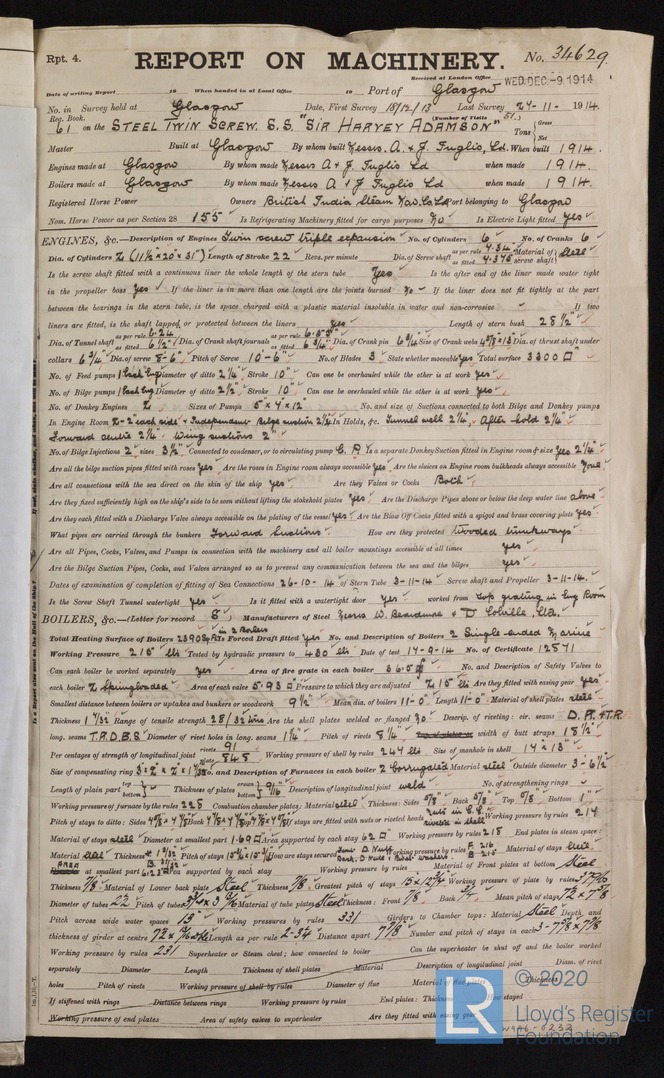 Rpt. 4.
REPORT ON MACHINERY.
No. 34629.
Received at London Office WED. DEC -9 1914
Date of writing Report 19 When handed in at Local Office 19 Port of Glasgow
No. in Survey held at Glasgow Date, First Survey 18/12/13 Last Survey 27-11- 1914.
Reg. Book. (Number of Visits 51.)
61 on the STEEL TWIN SCREW. S.S. "SIR HARVEY ADAMSON" Tons { Gross Net
Master Built at Glasgow By whom built Messrs. A. & J. Inglis, Ld. When built 1914.
Engines made at Glasgow By whom made Messrs A & J. Inglis Ld when made 1914.
Boilers made at Glasgow By whom made Messrs A & J Inglis Ld when made 1914.
Registered Horse Power Owners British India Steam Nav. Co. Ld Port belonging to Glasgow
Nom. Horse Power as per Section 28 155 Is Refrigerating Machinery fitted for cargo purposes No Is Electric Light fitted Yes
ENGINES, &c.—Description of Engines Twin screw triple expansion No. of Cylinders 6 No. of Cranks 6
Dia. of Cylinders 2 (11½ × 20 × 31") Length of Stroke 22 Revs. per minute Dia. of Screw shaft as per rule 4.34 as fitted 4.375 Material of screw shaft Steel
Is the screw shaft fitted with a continuous liner the whole length of the stern tube Yes Is the after end of the liner made water tight
in the propeller boss yes If the liner is in more than one length are the joints burned No If the liner does not fit tightly at the part
between the bearings in the stern tube, is the space charged with a plastic material insoluble in water and non-corrosive If two
liners are fitted, is the shaft lapped or protected between the liners yes Length of stern bush 28½"
Dia. of Tunnel shaft as per rule 6.24 as fitted 6½" Dia. of Crank shaft journals as per rule as fitted 6¾ Dia. of Crank pin 6¾ Size of Crank webs Dia. of thrust shaft under
collars 6¾ Dia. of screw 8-6" Pitch of Screw 10-6" No. of Blades 3 State whether moveable yes Total surface 3300 □"
No. of Feed pumps 1 each Eng Diameter of ditto 2¼ Stroke 10" Can one be overhauled while the other is at work yes
No. of Bilge pumps 1 each Eng Diameter of ditto 2½ Stroke 10" Can one be overhauled while the other is at work yes
No. of Donkey Engines 2 Sizes of Pumps No. and size of Suctions connected to both Bilge and Donkey pumps
In Engine Room 2-2" each side & Independent Bilge suction 2¼ In Holds, &c. Tunnel well 2¼, After hold 2¼"
Forward centre 2¼. Wing suctions 2"
No. of Bilge Injections 2 sizes 3½" Connected to condenser, or to circulating pump C. P. Is a separate Donkey Suction fitted in Engine room & size yes 2¼"
Are all the bilge suction pipes fitted with roses yes Are the roses in Engine room always accessible yes Are the sluices on Engine room bulkheads always accessible None
Are all connections with the sea direct on the skin of the ship yes Are they Valves or Cocks Both
Are they fixed sufficiently high on the ship's side to be seen without lifting the stokehold plates yes Are the Discharge Pipes above or below the deep water line above
Are they each fitted with a Discharge Valve always accessible on the plating of the vessel yes Are the Blow Off Cocks fitted with a spigot and brass covering plate yes
What pipes are carried through the bunkers Forward Suctions How are they protected Wooded trunkways
Are all Pipes, Cocks, Valves, and Pumps in connection with the machinery and all boiler mountings accessible at all times yes
Are the Bilge Suction Pipes, Cocks, and Valves arranged so as to prevent any communication between the sea and the bilges yes
Dates of examination of completion of fitting of Sea Connections 26-10-14 of Stern Tube 3-11-14 Screw shaft and Propeller 3-11-14.
Is the Screw Shaft Tunnel watertight yes Is it fitted with a watertight door yes worked from top grating in Eng Room
BOILERS, &c.—(Letter for record S) Manufacturers of Steel Messrs W. Beardmore & D Colville, Ltd.
Total Heating Surface of Boilers 2390 sq ft in 2 Boilers Is Forced Draft fitted yes No. and Description of Boilers 2 Single ended Marine
Working Pressure 215 lbs Tested by hydraulic pressure to 430 lbs Date of test 17-9-14 No. of Certificate 12571
Can each boiler be worked separately yes Area of fire grate in each boiler 36.5 □ No. and Description of Safety Valves to
each boiler 2 Spring loaded Area of each valve 5.93 □" Pressure to which they are adjusted 215 lbs Are they fitted with easing gear yes
Smallest distance between boilers or uptakes and bunkers or woodwork 9½" Mean dia. of boilers 11-0" Length 11-0" Material of shell plates steel
Thickness 1 7/32 Range of tensile strength 28/32 tons Are the shell plates welded or flanged No Descrip. of riveting: cir. seams D.R. & T.R.
long. seams T.R.D.B.S Diameter of rivet holes in long. seams 1¼" Pitch of rivets 8¼ width of butt straps 18½"
Per centages of strength of longitudinal joint rivets 91 plate 84.8 Working pressure of shell by rules 247 lbs Size of manhole in shell 17" × 13"
Size of compensating ring No. and Description of Furnaces in each boiler 2 Corrugated Material steel Outside diameter 3-6½"
Length of plain part top bottom Thickness of plates crown bottom 9/16 Description of longitudinal joint weld No. of strengthening rings
Working pressure of furnace by the rules 228 Combustion chamber plates: Material steel Thickness: Sides 5/8" Back 5/8" Top 5/8" Bottom 1"
Pitch of stays to ditto: Sides Back Top If stays are fitted with nuts or riveted heads Working pressure by rules 214
Material of stays steel Diameter at smallest part 1.69 □" Area supported by each stay 62 □" Working pressure by rules 218 End plates in steam space:
Material steel Thickness Pitch of stays How are stays secured Working pressure by rules F. 216 B. 215 Material of stays steel
Area at smallest part Area supported by each stay Working pressure by rules Material of Front plates at bottom Steel
Thickness 7/8 Material of Lower back plate Steel Thickness 7/8 Greatest pitch of stays Working pressure of plate by rules
Diameter of tubes Pitch of tubes Material of tube plates Steel Thickness: Front 7/8 Back Mean pitch of stays
Pitch across wide water spaces 13" Working pressures by rules 331 Girders to Chamber tops: Material Steel Depth and
thickness of girder at centre Length as per rule 2-3¼ Distance apart 7 7/8 Number and pitch of stays in each
Working pressure by rules 231 Superheater or Steam chest; how connected to boiler Can the superheater be shut off and the boiler worked
separately Diameter Length Thickness of shell plates Material Description of longitudinal joint Diam. of rivet
holes Pitch of rivets Working pressure of shell by rules Diameter of flue Material of flue plates Thickness
If stiffened with rings Distance between rings Working pressure by rules End plates: Thickness How stayed
Working pressure of end plates Area of safety valves to superheater Are they fitted with easing gear
© 2020
Lloyd's Register
Foundation
W996-0232